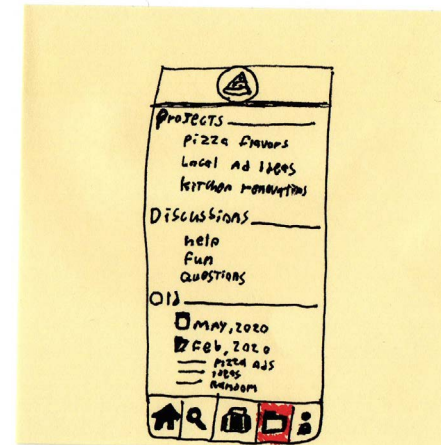 Projects
Pizza Flavors
Local Ad Ideas
kitchen renovations
Discussions
help
Fun
Questions
Old
May, 2020
Feb, 2020
Pizza Ads
ideas
Random